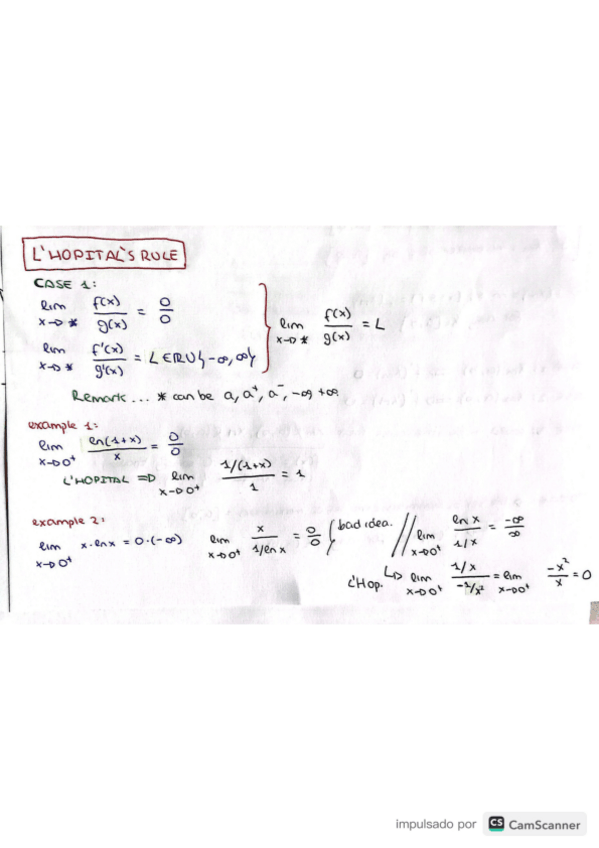 L'HOPITAL'S RULE
CASE 1:
lim x→* f(x)/g(x) = 0/0
lim x→* f'(x)/g'(x) = L ∈ R ∪ {-∞, ∞}
lim x→* f(x)/g(x) = L
Remark... * can be a, a⁺, a⁻, -∞, +∞
example 1:
lim x→0⁺ ln(1+x)/x = 0/0
L'HOPITAL ⇒ lim x→0⁺ 1/(1+x)/1 = 1
example 2:
lim x→0⁺ x·lnx = 0·(-∞) lim x→0⁺ x/(1/ln x) = 0/0 } bad idea. // lim x→0⁺ ln x/(1/x) = -∞/∞
L'Hop. ↳ lim x→0⁺ (1/x)/(-1/x²) = lim x→0⁺ -x²/x = 0
impulsado por CS CamScanner